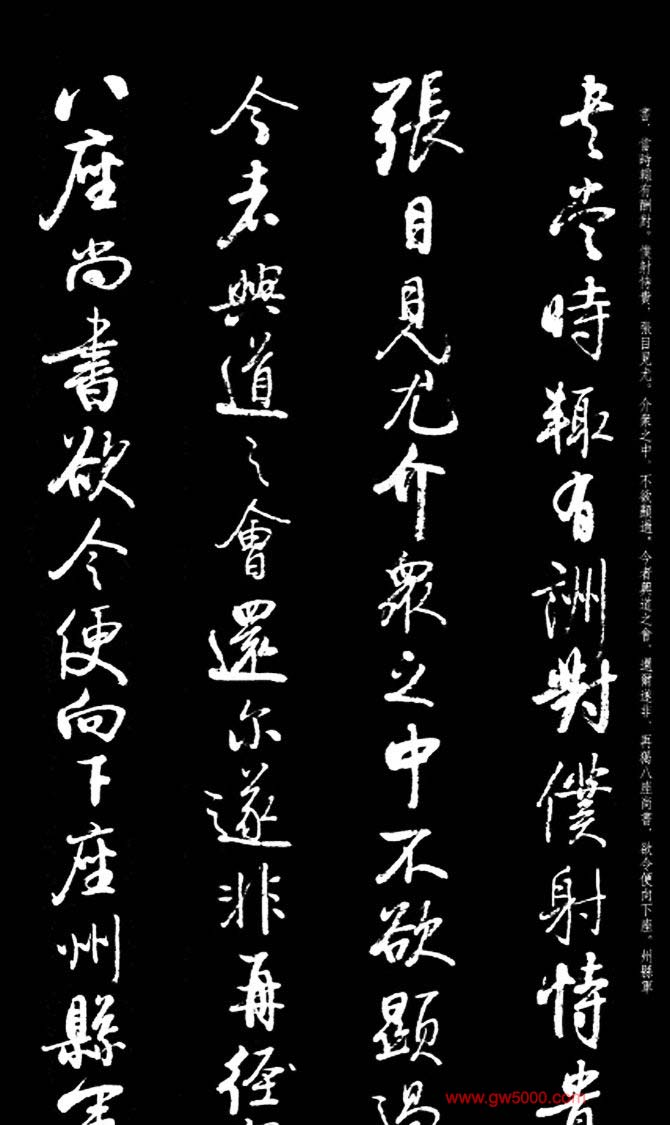 書，當時輒有酬對。僕射恃貴，張目見尤。介衆之中，不欲顯過。今者興道之會，還爾遂非，再猲八座尚書，欲令便向下座。州縣軍
書當時輒有酬對僕射恃貴
張目見尤介衆之中不欲顯過
今者興道之會還尔遂非再
八座尚書欲令便向下座州縣軍
www.gw5000.com